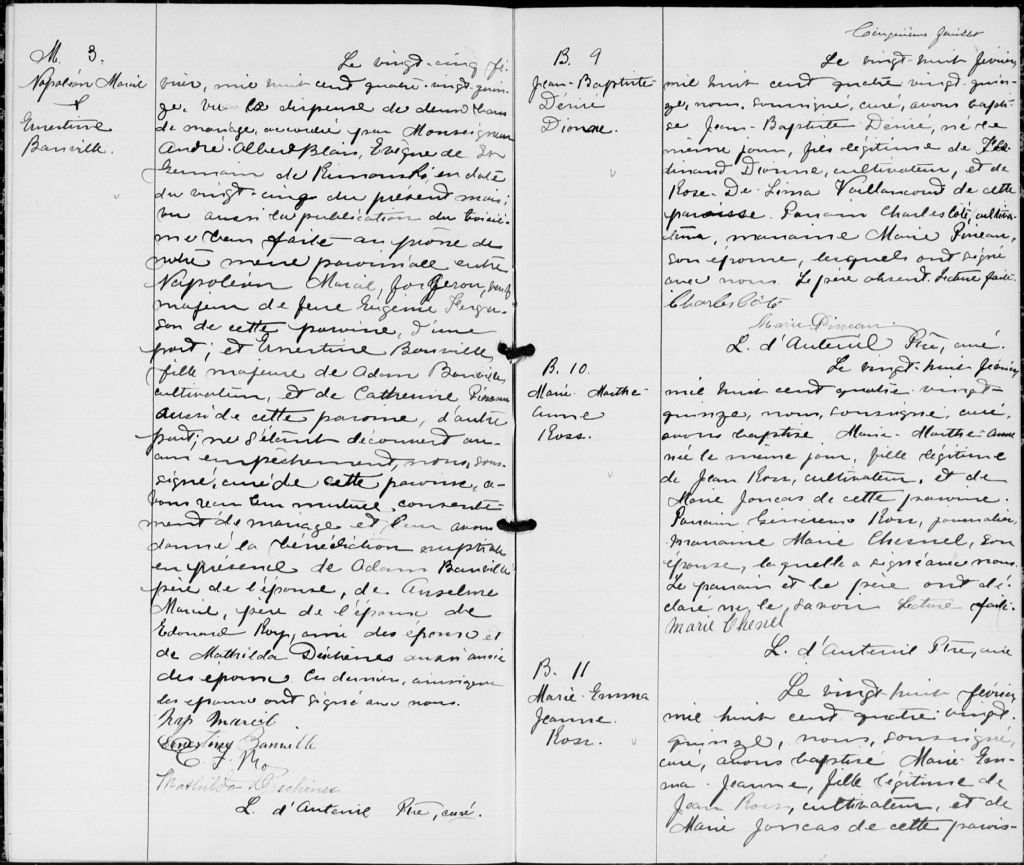 M. 3.
Napoléon Marcil
&
Ernestine
Banville.
Le vingt-cinq fé-
vrier, mil huit cent quatre-vingt-quin-
ze, vu la dispense de deux bans
de mariage, accordée par Monseigneur
André-Albert Blais, Evêque de St
Germain de Rimouski, en date
du vingt-cinq du présent mois;
vu aussi la publication du troisiè-
me ban faite au prône de
notre messe paroissiale entre
Napoléon Marcil, forgeron, veuf
majeur de feue Eugénie Fergu-
son de cette paroisse, d'une
part; et Ernestine Banville,
fille majeure de Adam Banville,
cultivateur, et de Catherine Pineau
aussi de cette paroisse, d'autre
part; ne s'étant découvert au-
cun empêchement, nous, sous-
signé, curé de cette paroisse, a-
vons reçu leur mutuel consente-
ment de mariage et leur avons
donné la bénédiction nuptiale
en présence de Adam Banville
père de l'épouse, de Anselme
Marcil, père de l'époux de
Edouard Roy, ami des époux et
de Mathilda Deschènes aussi amie
des époux. Ces derniers, ainsi que
les époux ont signé avec nous.
Nap Marcil
Ernestine Banville
Mathilda Deschènes
L. d'Auteuil Ptre, curé.
Cinquième feuillet
B. 9
Jean-Baptiste
Désiré
Dionne.
Le vingt-huit février
mil huit cent quatre vingt-quin-
ze, nous, soussigné, curé, avons bapti-
sé Jean-Baptiste Désiré, né le
même jour, fils légitime de Fer-
dinand Dionne, cultivateur, et de
Rose-De-Lima Vaillancourt de cette
paroisse. Parrain Charles Côté, cultiva-
teur, marraine Marie Pineau,
son épouse, lesquels ont signé
avec nous. Le père absent. Lecture faite.
Charles Côté
Marie Pineau
L. d'Auteuil Ptre, curé.
B. 10.
Marie-Marthe-
Anne
Ross.
Le vingt-huit février
mil huit cent quatre-vingt-
quinze, nous, soussigné, curé,
avons baptisé Marie-Marthe-Anne
née le même jour, fille légitime
de Jean Ross, cultivateur, et de
Marie Joncas de cette paroisse.
Parrain Généreux Ross, journalier,
marraine Marie Chesnel, son
épouse, laquelle a signé avec nous.
Le parrain et le père ont dé-
claré ne le savoir. Lecture faite.
Marie Chesnel
L. d'Auteuil Ptre, curé
B. 11
Marie-Emma
Jeanne
Ross.
Le vingt-huit février
mil huit cent quatre vingt-
quinze, nous, soussigné,
curé, avons baptisé Marie-Em-
ma-Jeanne, fille légitime de
Jean Ross, cultivateur, et de
Marie Joncas de cette parois-